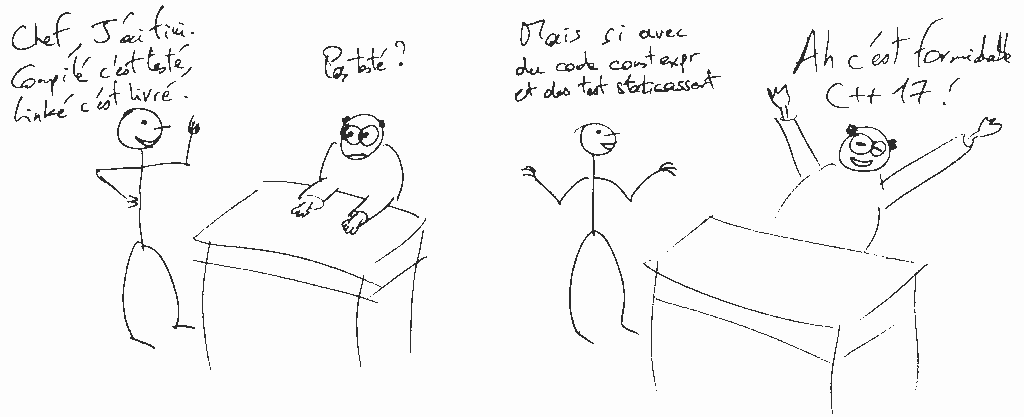 Chef, J'ai fini.
Compilé c'est testé,
linké c'est livré.
Pas testé ?
Mais si avec
du code constexpr
et des test staticassert
Ah c'est formidable
C++ 17 !